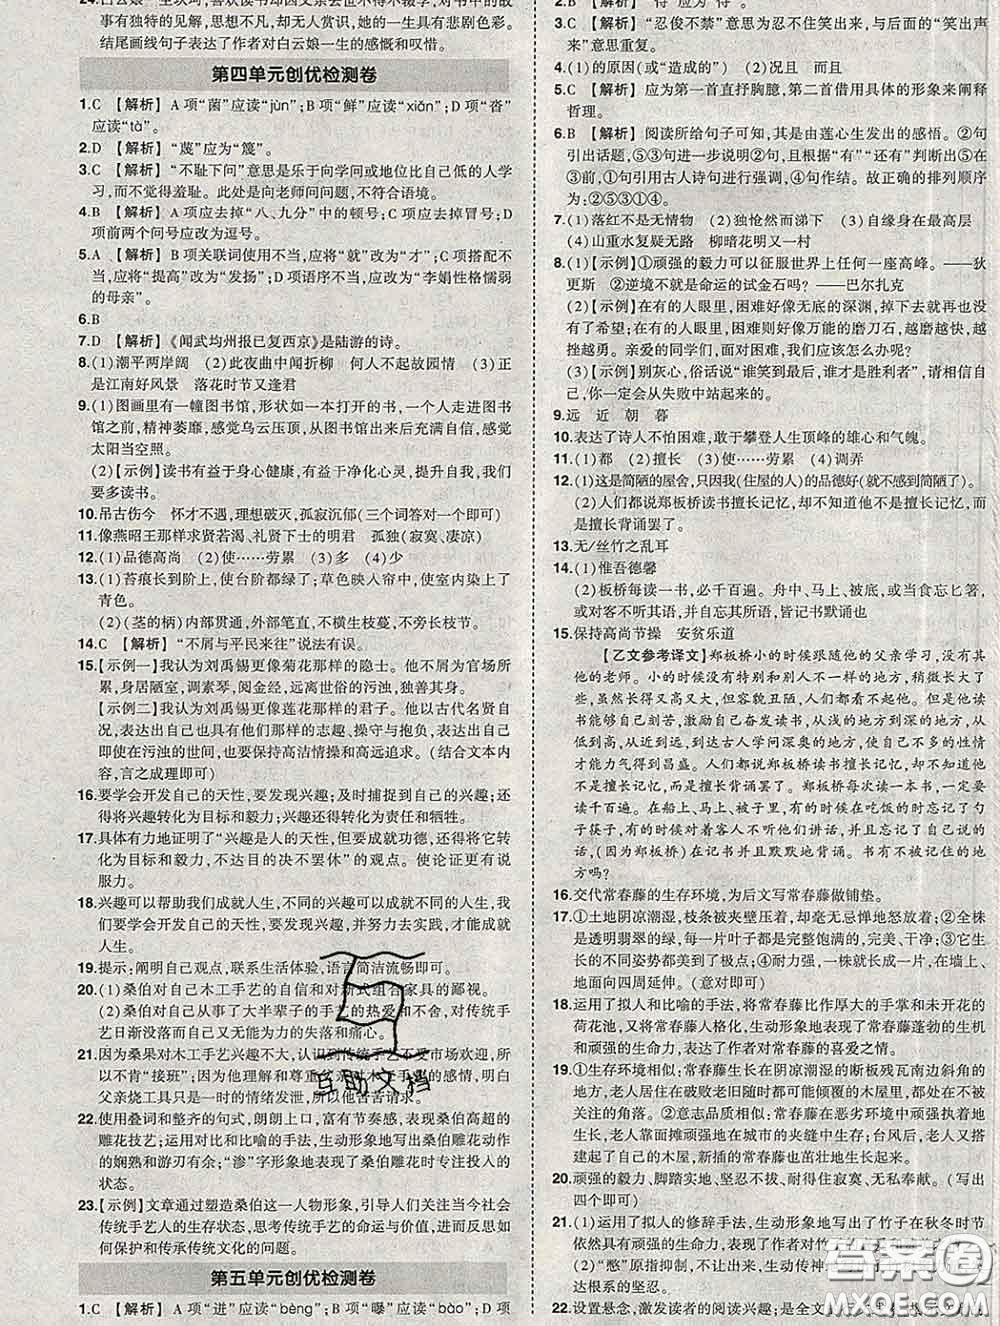 24.白云娘一生坎坷,喜欢读书却因父亲去世不得不辍学,对书中的故
事有独特的见解,思想前卫,却无人赏识,她的一生具有传奇色彩。
结尾画线句子表达了作者对白云娘一生的感慨和叹惜。
第四单元创优检测卷
1.C 【解析】A项“菌”应读“jùn”;B项“鲜”应读“xiǎn”;D项“沓”
应读“tà”。
2.D 【解析】“蔑”应为“篾”。
3.C 【解析】“不耻下问”意思是乐于向学问或地位比自己低的人学
习,而不觉得羞耻。此处是向老师问问题,不符合语境。
4.B 【解析】A项应去掉“八、九分”中的顿号;C项应去掉冒号;D
项前两个问号应改为逗号。
5.A 【解析】B项关联词使用不当,应将“就”改为“才”;C项搭配不
当,应将“提高”改为“发扬”;D项语序不当,应将“李娟性格懦弱
的母亲”。
6.B
7.D 【解析】《闻武均州报已复西京》是陆游的诗。
8.(1)潮平两岸阔 (2)此夜曲中闻折柳 何人不起故园情 (3)正
是江南好风景 落花时节又逢君
9.(1)图画里有一幢图书馆,形状如一本打开的书,一个人走进图书
馆之前,精神萎靡,似有乌云压顶,从图书馆出来后充满自信,头顶
太阳当空照。
(2)【示例】读书有益于身心健康,有益于净化心灵,提升素质,我们
要多读书。
10.吊古伤今 怀才不遇,理想破灭,孤寂沉郁(三个词答对一个即可)
11.像燕昭王那样求贤若渴、礼贤下士的明君 孤独(寂寞、凄凉)
12.(1)品德高尚 (2)使……劳累 (3)多 (4)少
13.(1)苔痕长到阶上,使台阶都绿了;草色映入帘中,使室内染上了
青色。
(2)(茎的柄)内部贯通,外部笔直,不横生枝蔓,不旁生枝节。
14.C 【解析】“不屑与平民来往”说法有误。
15.【示例一】我认为刘禹锡更像菊花那样的隐士。他不屑为官场所
累,寄居陋室,调素琴,阅金经,远离世俗的污浊,独善其身。
【示例二】我认为刘禹锡更像莲花那样的君子。他以古代名贤自
况,表达出自己也具有他们那样的志趣、操守与抱负,表达出自己
即使在污浊的世间,也要保持高洁情操和高远追求。(结合文本内
容,言之成理即可)
16.要学会开发自己的天性,要发现兴趣;及时捕捉到自己的兴趣;还
得将兴趣转化为目标和毅力;还得将兴趣转化为责任和牺牲。
17.具体有力地证明了“兴趣是人的天性,但要成功德,还得将它转
化为目标和毅力,不达目的决不罢休”的观点。使论证更有说
服力。
18.兴趣可以帮助我们成就人生,不同的兴趣可以成就不同的人生,
我们要学会开发自己的天性,发现兴趣,并努力去实践,才能成功
人生。
19.提示:阐明自己观点,联系生活体验,语言简洁流畅即可。
20.(1)桑伯对自己木工手艺的自信和对新式组合家具的鄙视。
(2)桑伯对自己从事了大半辈子的手艺的热爱和不舍,对传统手
艺日渐没落而自己又无能为力的失落和痛心。
21.因为桑果对木工手艺兴趣不大,认识到传统手艺不受市场欢迎,所
以不肯“接班”;但他对父亲的木工手艺还是认可和尊重的,当时
父亲烧工具只是一时的情绪发泄,所以他苦苦请求。
22.使用叠词和整齐的句式,朗朗上口,富有节奏感,表现桑伯高超的
雕花技艺;运用对比和比喻的手法,生动形象地写出桑伯雕花动作
的娴熟和游刃有余;“渗”字形象地写出了桑伯雕花时专注投入的
状态。
23.【示例】文章通过塑造桑伯这一人物形象,引导人们关注当今社会
传统手艺人的生存状态,思考传统手艺的命运与价值,进而反思如
何保护和传承传统文化的问题。
第五单元创优检测卷
1.C 【解析】A项“迸”应读“bèng”;B项“曝”应读“bào”;D项
“侍”应为“待”。
3.C 【解析】“忍俊不禁”意思为忍不住发笑,与后面的“笑出声
来”意思重复。
4.(1)的原因(或“造成的”) (2)况且 而且
5.C 【解析】应为第一首直抒胸臆,第二首借用具体的形象来阐释
哲理。
6.B 【解析】阅读所给句子可知,其是由莲心生发出的感悟。②句
引出话题,⑤③句进一步说明,根据“有”“还有”判断出⑤在
③前,①句引用古人诗句进行证明,④句作结。故正确的排列顺序
为:②⑤③①④。
7.(1)落红不是无情物 (2)独怆然而涕下 (3)自缘身在最高层
(4)山重水复疑无路 柳暗花明又一村
8.(1)【示例】①顽强的毅力可以征服世界上任何一座高峰。——狄
更斯 ②逆境不就是命运的试金石吗?——巴尔扎克
(2)【示例】在有的人眼里,困难好像无底的深渊,掉下去就没
有了希望;在有的人眼里,困难好像万能的磨刀石,越磨越快,越
挫越勇。亲爱的同学们,面对困难,我们应该怎么办呢?
(3)【示例】别灰心,俗话说“谁笑到最后,谁才是胜利者”,请相信
自己,你一定会从失败中站起来的。
9.远 近 朝 暮
10.表达了诗人不怕困难,敢于攀登人生顶峰的雄心和气魄。
11.(1)都 (2)擅长 (3)使……劳累 (4)调弄
12.(1)这是简陋的屋舍,只因我(住屋的人)的品德好(就不感到简陋了)。
(2)人们都说郑板桥读书擅长记忆,却不知道他不是擅长记忆,而
是擅长背诵罢了。
13.无/丝竹之乱耳
14.(1)惟吾德馨
(2)板桥每读一书,必千百遍。舟中、马上、被底,或当食忘匕箸,
或对客不听其语,并自忘其所语,皆记书默诵也
15.保持高尚节操 安贫乐道
【乙文参考译文】郑板桥小的时候跟随他的父亲学习,没有其
他的老师。小的时候没有特别和别人不一样的地方,稍微长大一
些,虽然长得又高又大,但容貌丑陋,人们都小看他。但他读
书能够自己刻苦,激励自己奋发读书,从浅的地方到深的地方,
从低到高,从近到远,达到古人学问深奥的地方,使自己不多的性情
才力能得到昌盛。人们都说郑板桥读书擅长记忆,却不知道他不
是擅长记忆,而是擅长背诵罢了。郑板桥每次读一本书,一定要
读千百遍。在船上、马上、被子里,有的时候在吃饭的时候忘记了
勺子筷子,有的时候对着客人不听他们讲话,并忘记了自己说了什
么,(因为郑板桥)在记书并且默默地背诵。
16.交代常春藤的生存环境,为后文写常春藤做铺垫。
17.①土地阴凉潮湿,枝条被夹壁压着,却毫无忌惮地发展着;②全株
是透明翡翠的绿,每一片叶子都是饱满的,完美、干净;③
的不同姿势都美了许多;④耐力强,一株就能在地上、墙上、
地面向四周延伸。(意对即可)
18.运用了拟人和比喻的手法,将常春藤比作厚大的手掌和未开花的
荷花池,又将常春藤人格化,生动形象地写出了常春藤蓬勃的生机
和顽强的生命力,表达了作者对常春藤的喜爱之情。
19.①生存环境相似:常春藤在阴凉潮湿的断桥残瓦南边斜角的地
方,老人居住在破败老旧随时可能倾覆的木屋里,都是在不被
关注的角落。②意志品质相似:常春藤在恶劣环境中顽强地生
长,老人靠面摊顽强地在城市的夹缝中生存;台风后,老人又
搭起了自己的木屋,新的常春藤也茁壮地生长出来。
20.顽强的生命力、脚踏实地、坚忍不拔、耐得住寂寞、无私奉献。(写出
四个即可)
21.(1)运用了拟人的修辞手法,生动形象地写出了竹子在秋冬时节
依然具有顽强的生命力,表达了作者对竹
(2)“憋”意为抑制或堵住不让出来,生动传神
达根系的坚忍。
22.设置悬念,激发读者的阅读兴趣;是全文
互助文档
答案圈
MXQE.COM